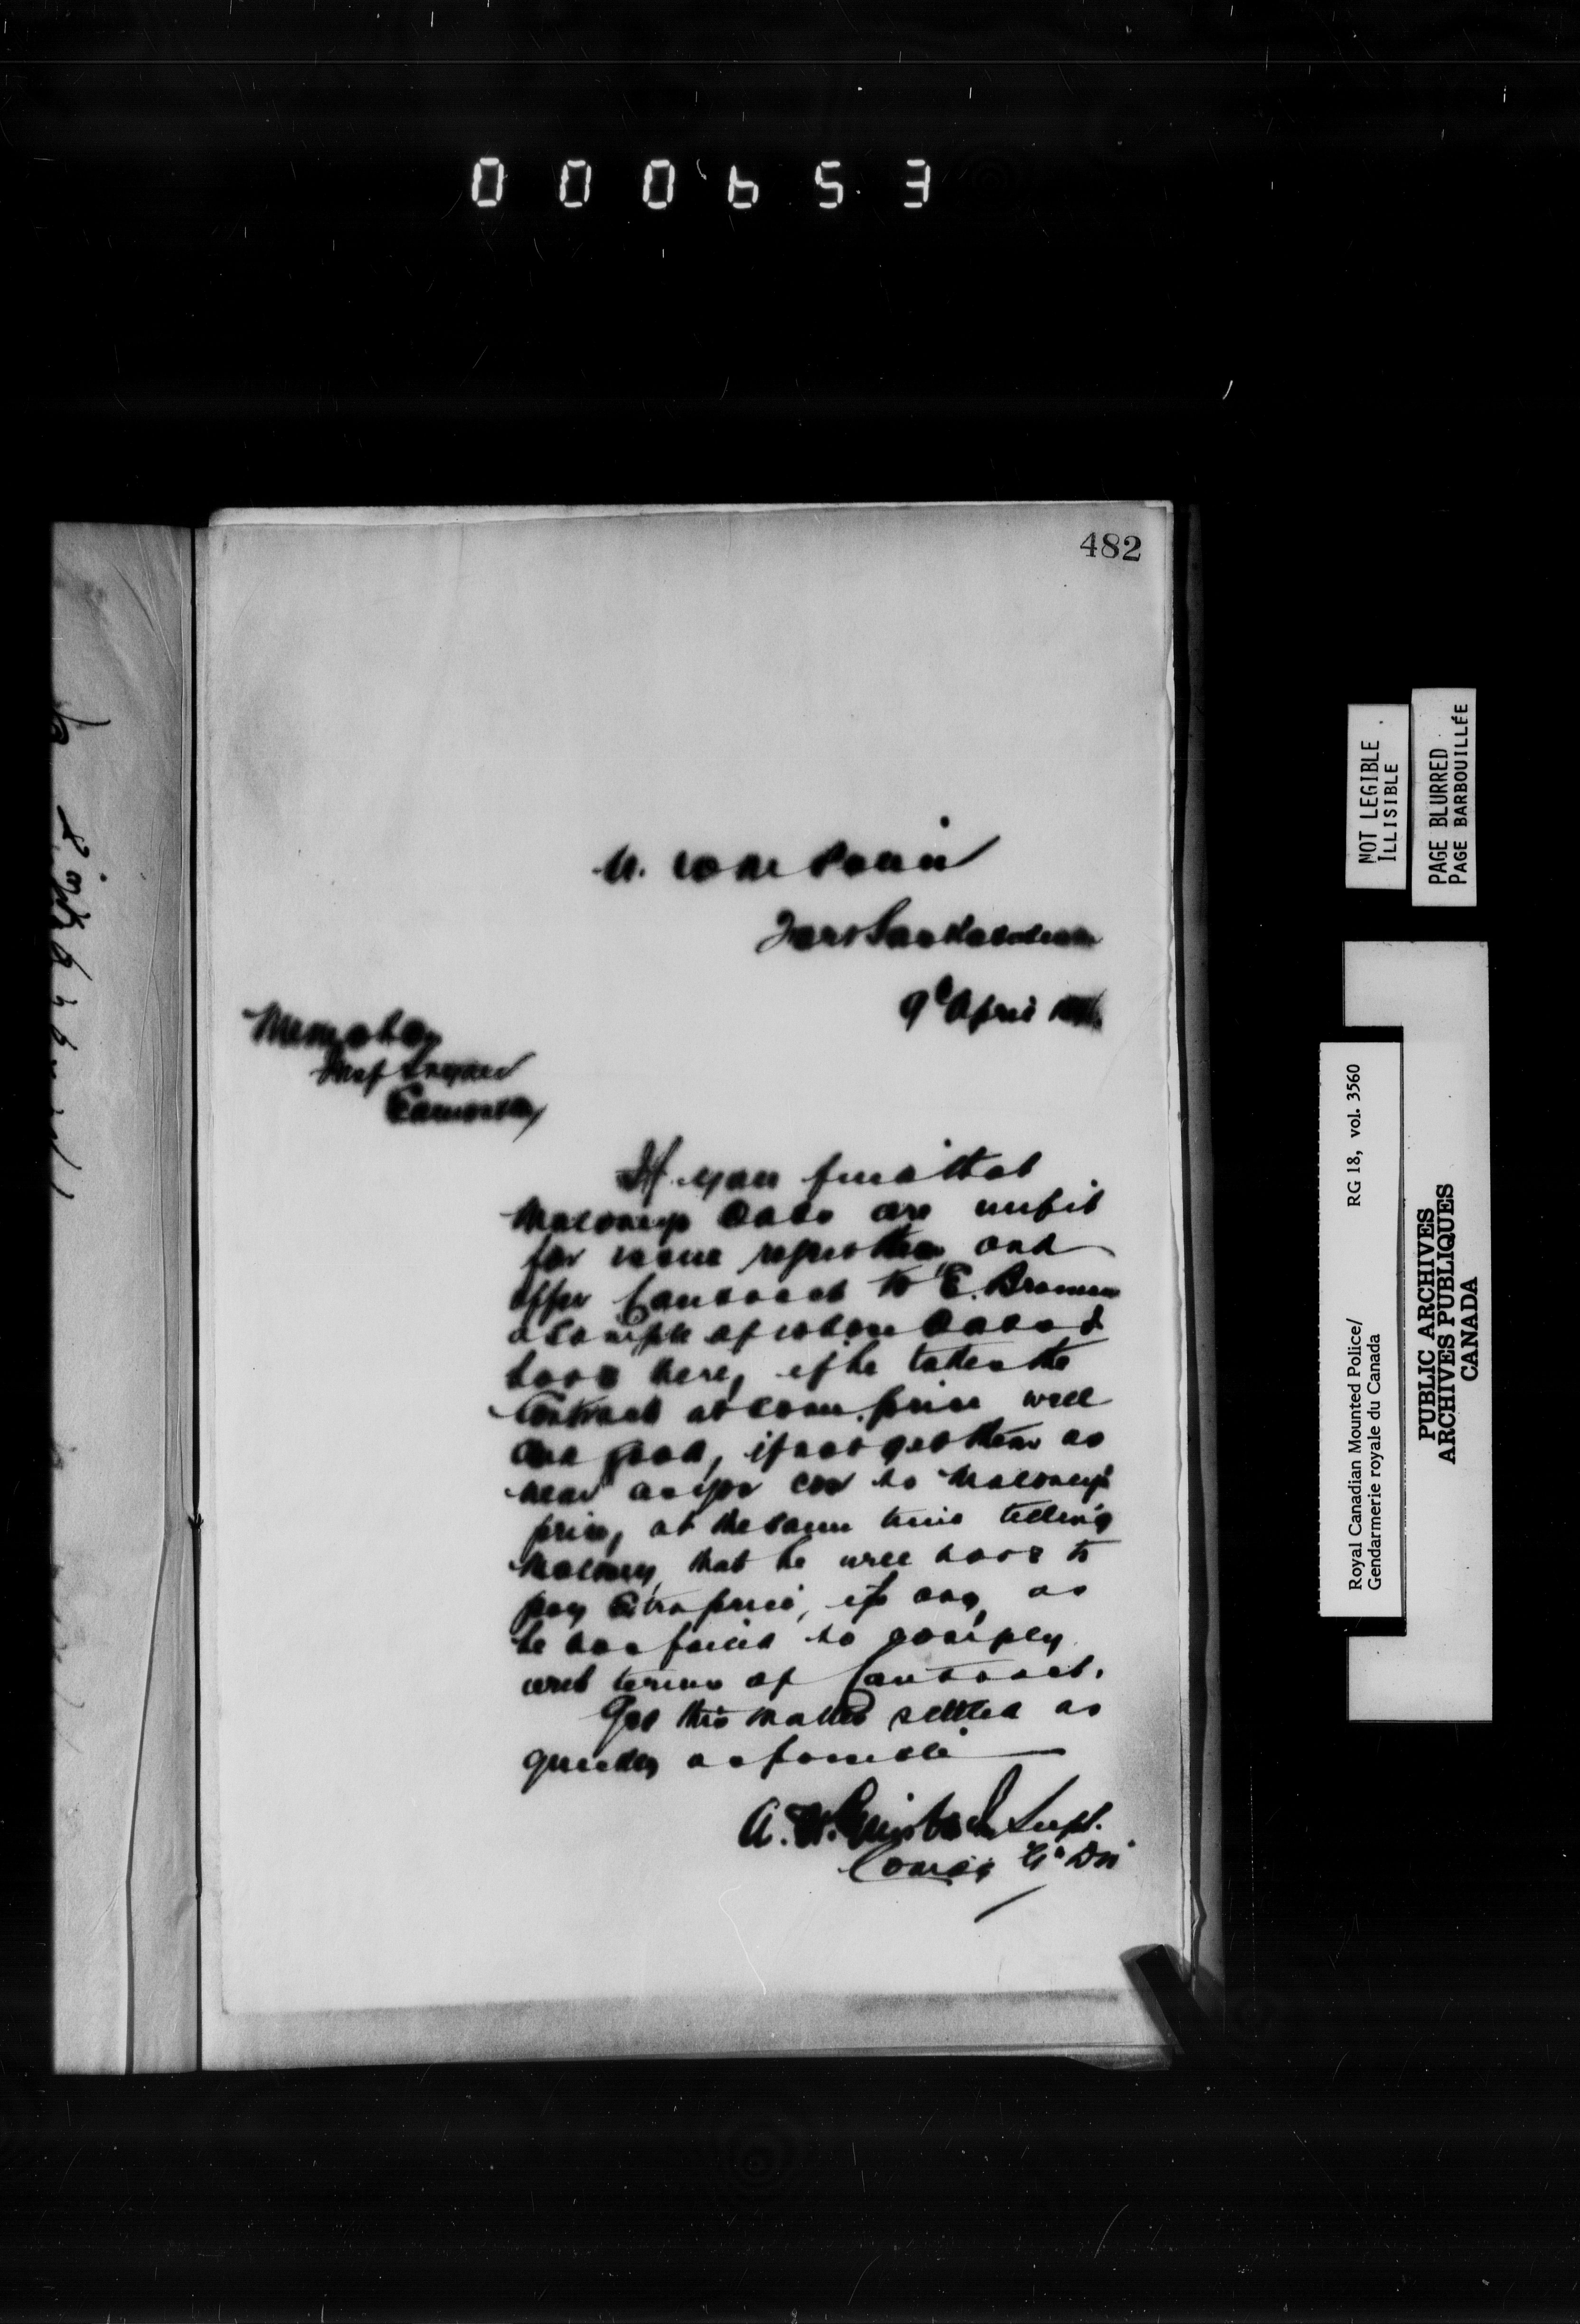 000653
482
N. W. M. Police
Fort Saskatchewan
9th April
Memo to
Insp Snyder
Edmonton
If you find that
Maloney's Oats are unfit
for issue reject them, and
offer Contract to E. Brosseau
a sample of whose Oats I
have here, if he takes the
Contract at same price well
and good, if not get them as
near as you can to Maloney's
price, at the same time telling
Maloney, that he will have to
pay Extra price, if any, as
he has failed to comply
with terms of Contract.
Get this matter settled as
quickly as possible
A. H. Griesbach Supt.
Comdg "G" Div
NOT LEGIBLE
ILLISIBLE
PAGE BLURRED
PAGE BARBOUILLÉE
Royal Canadian Mounted Police/ RG 18, vol. 3560
Gendarmerie royale du Canada
PUBLIC ARCHIVES
ARCHIVES PUBLIQUES
CANADA